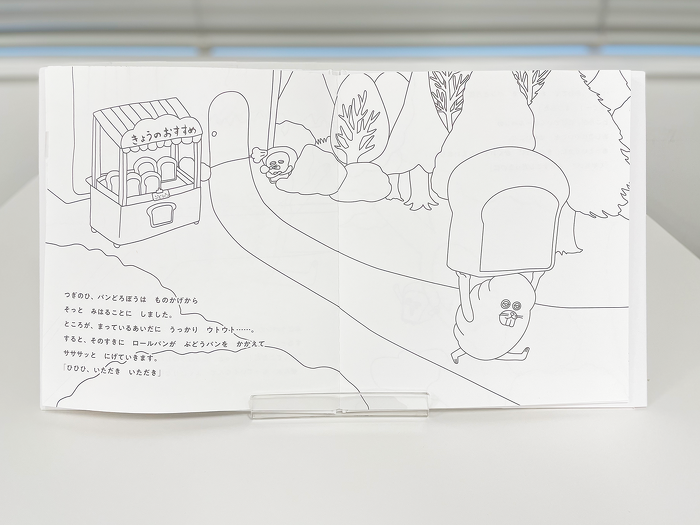 きょうのおすすめ
つぎのひ、パンどろぼうは　ものかげから
そっと　みはることに　しました。
ところが、まっているあいだに　うっかり　ウトウト……。
すると、そのすきに　ロールパンが　ぶどうパンを　かかえて
サササッと　にげていきます。
「ひひひ、いただき　いただき」